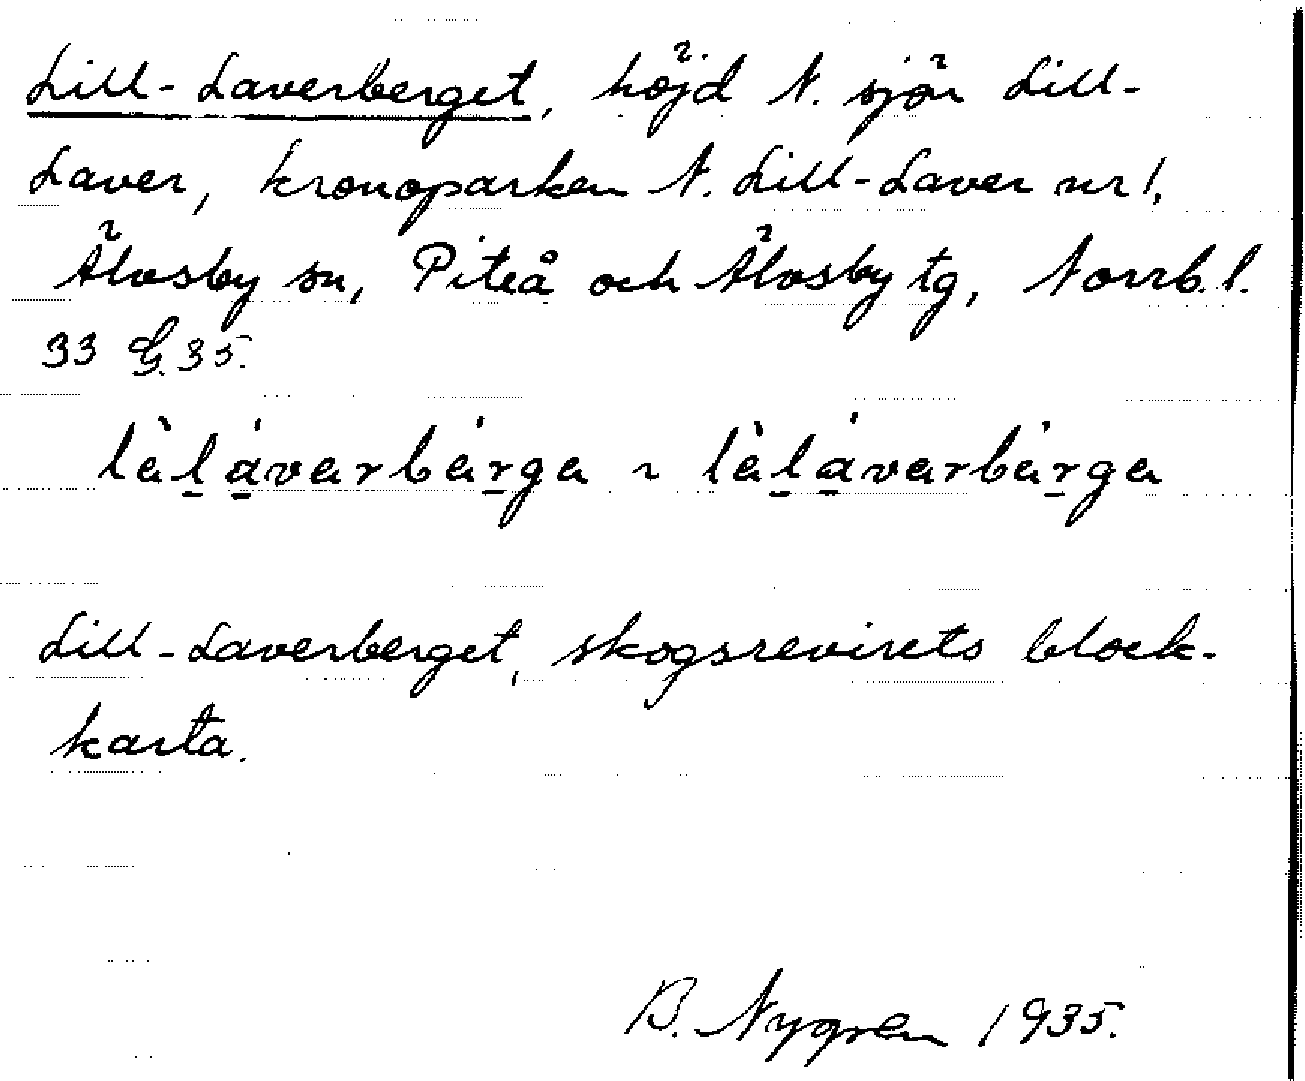 Lill-Laverberget, höjd N. sjön Lill-
Laver, kronoparken N. Lill-Laver nr 1,
Älvsby sn, Piteå och Älvsby tg, Norrb. l.
33 G. 35.
lìl̠a̠varbárga ~ lìl̠a̠varbárga
Lill-Laverberget, skogsrevirets block-
karta.
B. Nygren 1935.